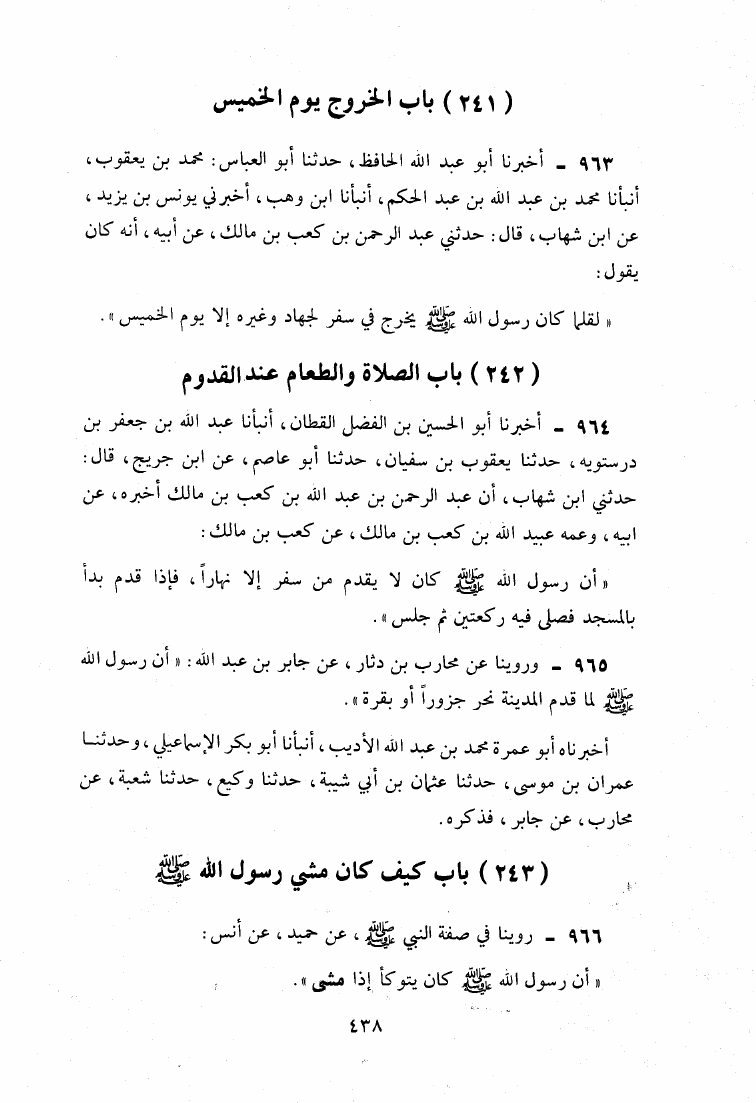 ( ٢٤١ ) باب الخروج يوم الخميس
٩٦٣ - أخبرنا أبو عبد الله الحافظ، حدثنا أبو العباس: محمد بن يعقوب،
أنبأنا محمد بن عبد الله بن عبد الحكم، أنبأنا ابن وهب، أخبرني يونس بن يزيد،
عن ابن شهاب، قال: حدثني عبد الرحمن بن كعب بن مالك، عن أبيه، أنه كان
يقول:
« لقلما كان رسول الله ﷺ يخرج في سفر لجهاد وغيره إلا يوم الخميس ».
( ٢٤٢ ) باب الصلاة والطعام عند القدوم
٩٦٤ - أخبرنا أبو الحسين بن الفضل القطان، أنبأنا عبد الله بن جعفر بن
درستويه، حدثنا يعقوب بن سفيان، حدثنا أبو عاصم، عن ابن جريج، قال:
حدثني ابن شهاب، أن عبد الرحمن بن عبد الله بن كعب بن مالك أخبره، عن
ابيه، وعمه عبيد الله بن كعب بن مالك، عن كعب بن مالك:
« أن رسول الله ﷺ كان لا يقدم من سفر إلا نهاراً، فإذا قدم بدأ
بالمسجد فصلى فيه ركعتين ثم جلس ».
٩٦٥ - وروينا عن محارب بن دثار، عن جابر بن عبد الله: « أن رسول الله
ﷺ لما قدم المدينة نحر جزوراً أو بقرة ».
أخبرناه أبو عمرة محمد بن عبد الله الأديب، أنبأنا أبو بكر الإسماعيلي، وحدثنا
عمران بن موسى، حدثنا عثمان بن أبي شيبة، حدثنا وكيع، حدثنا شعبة، عن
محارب، عن جابر، فذكره.
( ٢٤٣ ) باب كيف كان مشي رسول الله ﷺ
٩٦٦ - روينا في صفة النبي ﷺ، عن حميد، عن أنس:
« أن رسول الله ﷺ كان يتوكأ إذا مشى ».
٤٣٨